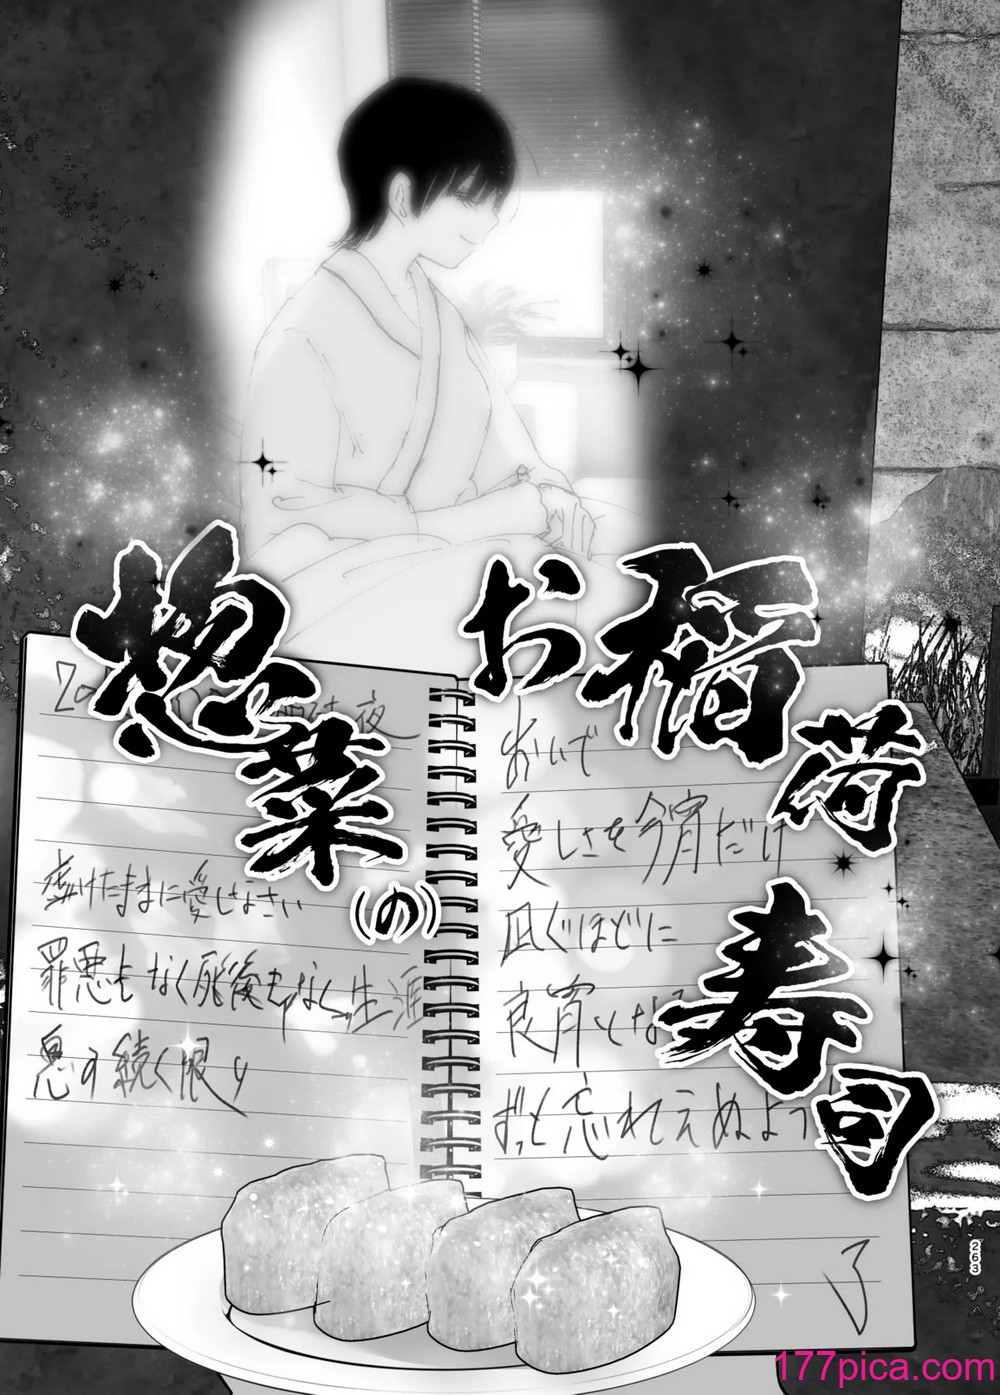 お稲荷寿司
惣菜
(の)
虚けたままに愛しなさい
罪悪もなく死後もなく生涯
息の続く限り
おいで
愛しさを今宵だけ
凪ぐほどに
良宵とな
ずっと忘れてえぬよう
了
263
177pica.com